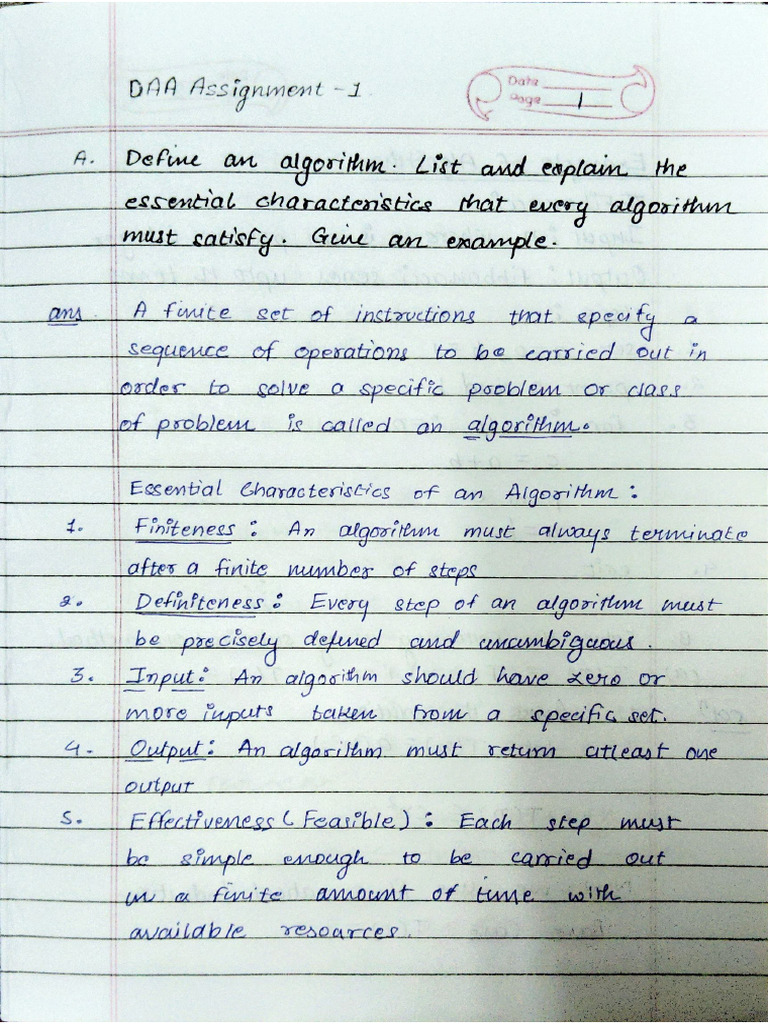 DAA Assignment - 1
Date
Page 1
A. Define an algorithm. List and explain the
essential characteristics that every algorithm
must satisfy. Give an example.
ans. A finite set of instructions that specify a
sequence of operations to be carried out in
order to solve a specific problem or class
of problem is called an algorithm.
Essential Characteristics of an Algorithm :
1. Finiteness : An algorithm must always terminate
after a finite number of steps
2. Definiteness : Every step of an algorithm must
be precisely defined and unambiguous.
3. Input : An algorithm should have zero or
more inputs taken from a specific set.
4. Output : An algorithm must return atleast one
output
5. Effectiveness (Feasible) : Each step must
be simple enough to be carried out
in a finite amount of time with
available resources.